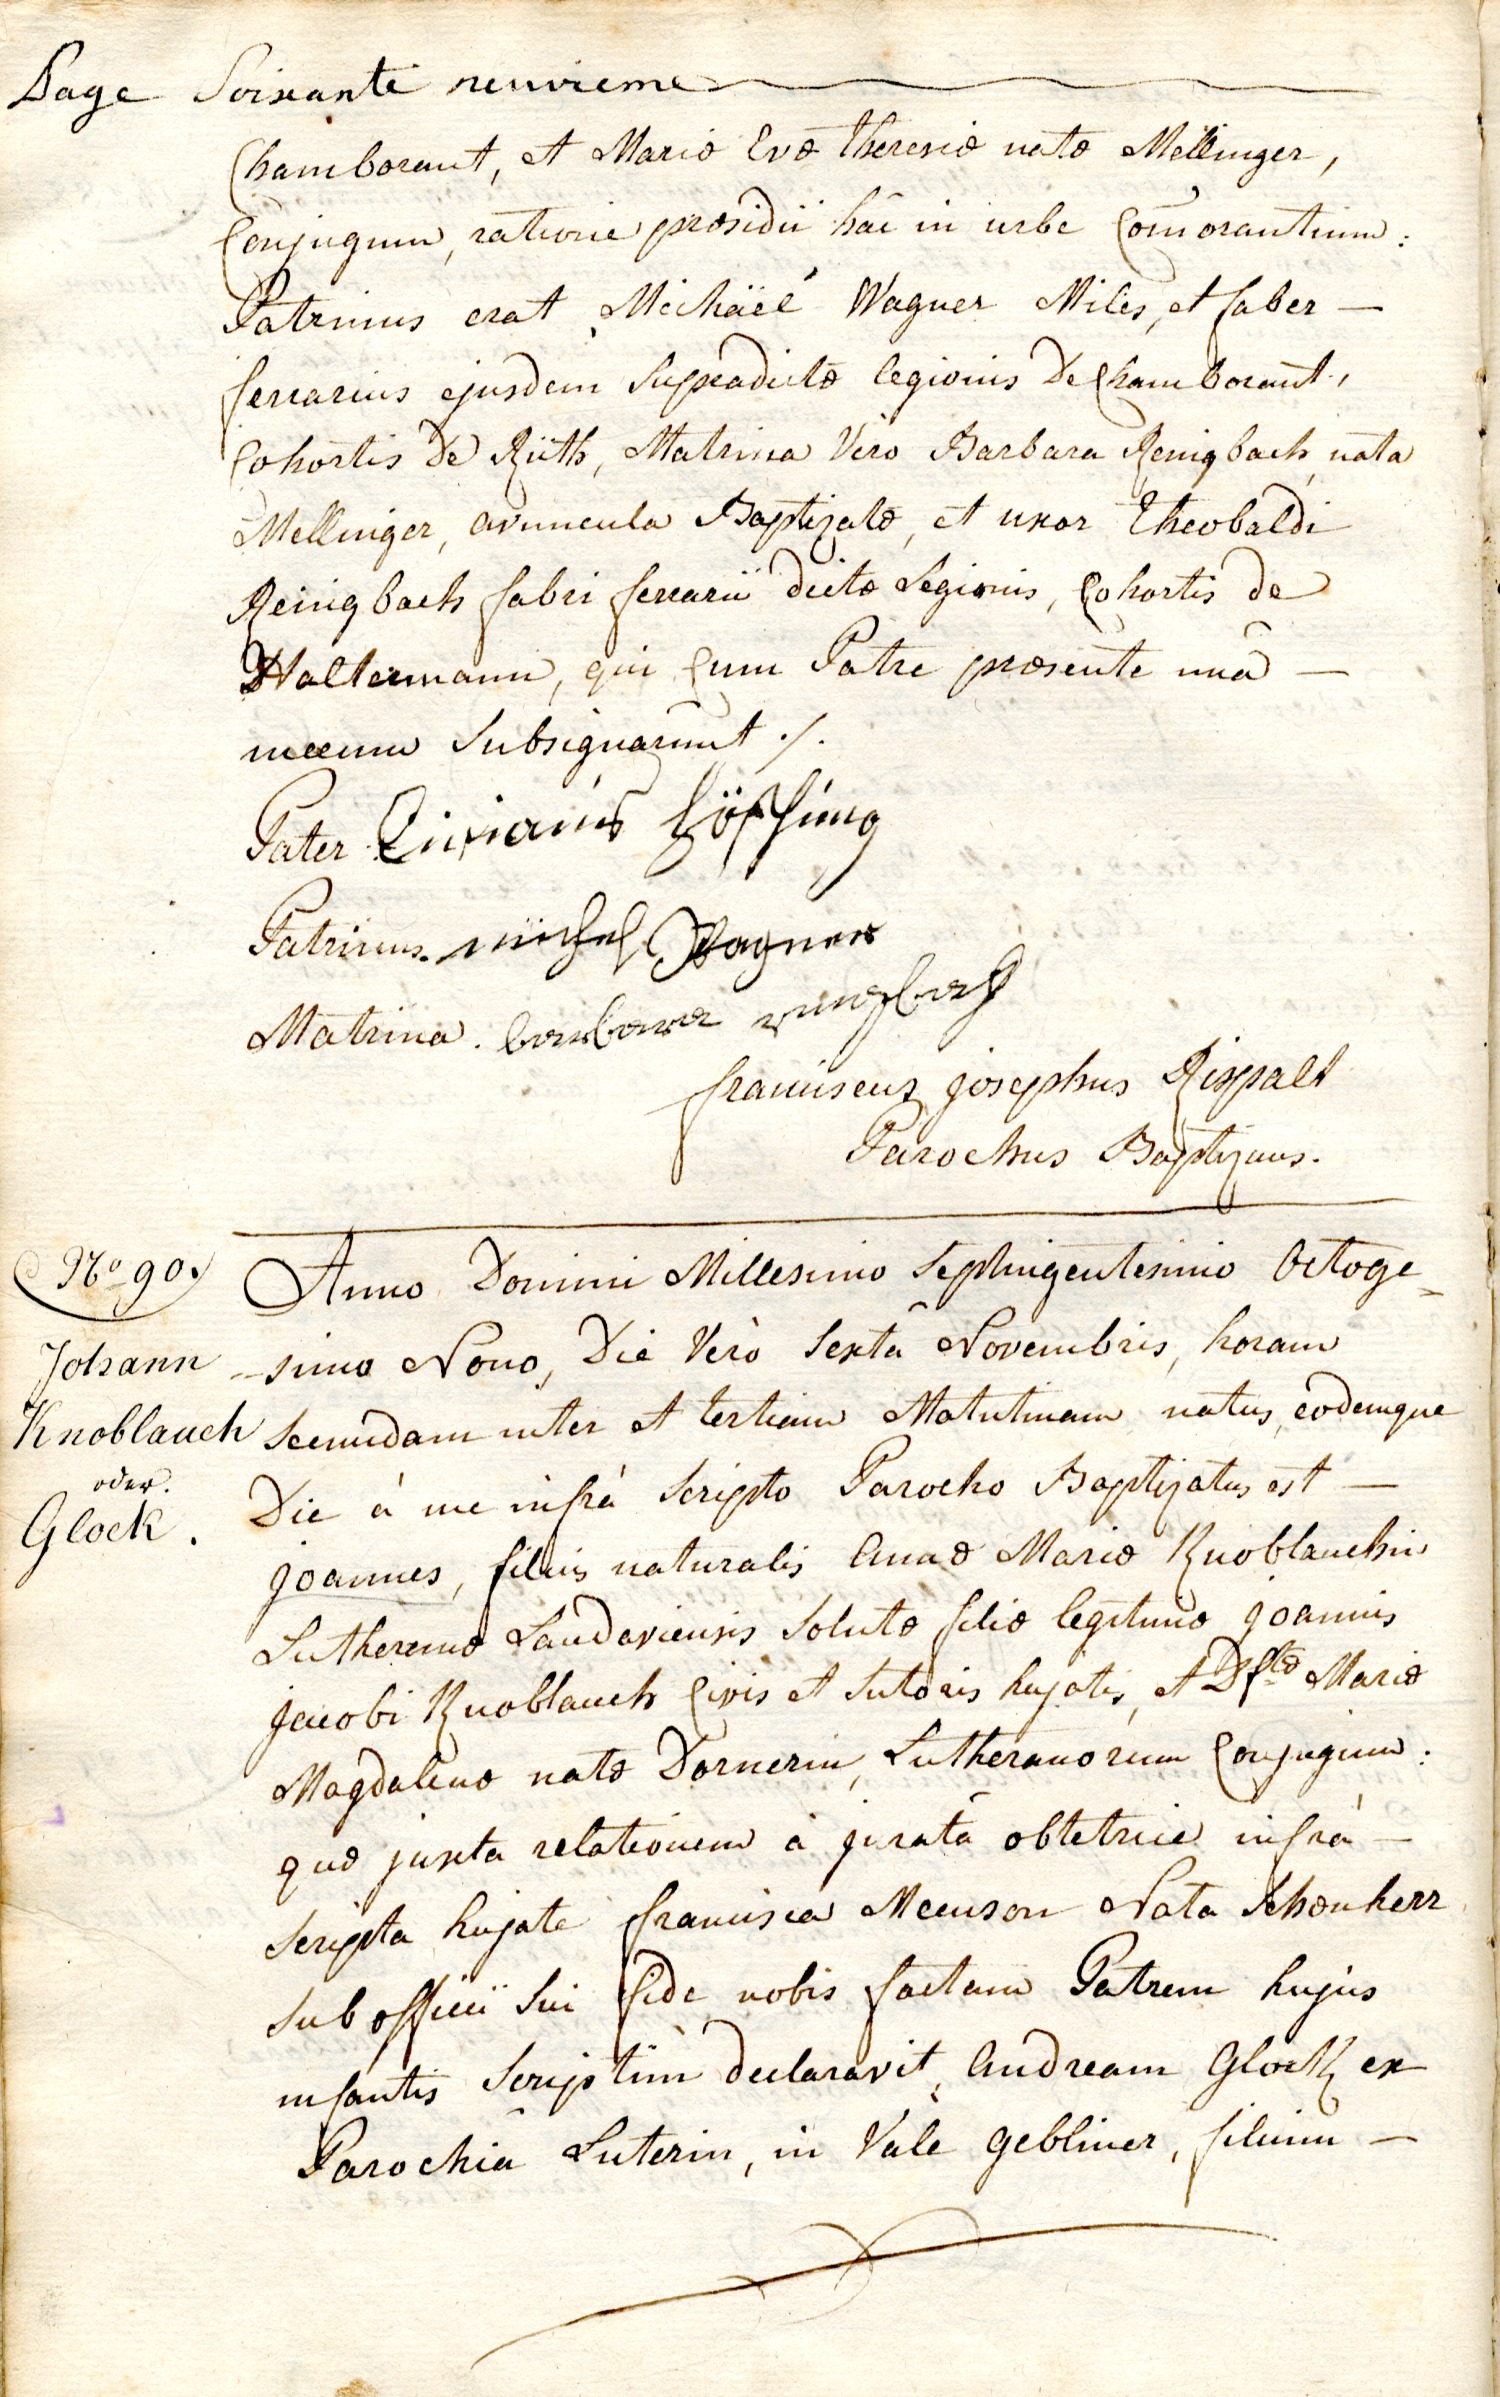 Page Soixante neuvieme
Chamborant, et Mariæ Evæ theresiæ natæ Mellinger,
Conjugum, ratione præsidii hâc in urbe Com̄orantium:
Patrinus erat Michaël Wagner Miles, et faber —
ferrarius ejusdem Supradictæ legionis De Chamborant,
Cohortis de Rüth, Matrina Vero Barbara Reinigbach nata
Mellinger, avuncula Baptizatæ, et uxor Theobaldi
Reinigbach fabri ferrarii dictæ Legionis, Cohortis de
Haltermann, qui Cum Patre præsente unâ —
mecum Subsignarunt ./.
Pater
Patrinus. michel Wagner
Matrina. barbara
franciscus josephus Rispalt
Parochus Baptizans.
No 90.
Johann
Knoblauch
oder.
Glock.
Anno Domini Millesimo Septingentesimo Octoge=
-simo Nono, Die Verò Sextâ Novembris, horam
Secundam inter et tertiam Matutinam natus, eodemque
Die à me infrà Scripto Parocho Baptizatus est —
joannes, filius naturalis Annæ Mariæ Knoblauchin
Lutheranæ Landaviensis Solutæ filiæ legitimæ joannis
jacobi Knoblauch Civis et Sutoris hujatis, et Dfctæ Mariæ
Magdalenæ natæ Dornerin, Lutheranorum Conjugum:
quæ juxta relationem à juratâ obstetrice infrà —
Scripta hujate francisca Meenson Nata Schönherr
Sub officii Sui fide nobis factam Patrem hujus
infantis Scriptim declaravit, Andream Glock ex
Parochiâ Luterin, in Vale gebliner, filium —